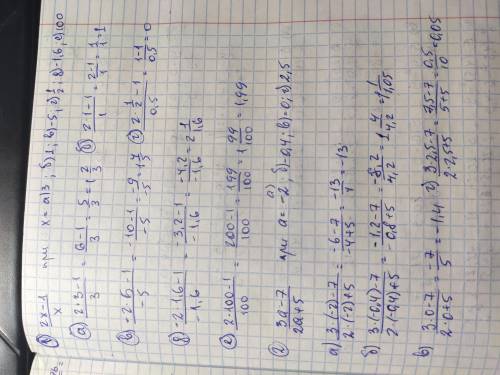 ① 2x-1/x при x = а) 3; б) 1; в) -5; г) 1/2; д) -1,6; е) 100
а) 2·3-1/3 = 6-1/3 = 5/3 = 1 2/3 б) 2·1-1/1 = 2-1/1 = 1/1 = 1
в) -2·5-1/-5 = -10-1/-5 = -9/-5 = г) 2·1/2-1/0,5 = 1-1/0,5 = 0
д) -2·1,6-1/-1,6 = -3,2-1/-1,6 = -4,2/-1,6 = 2 1/1,6
е) 2·100-1/100 = 200-1/100 = 199/100 = 1 99/100 = 1,99
② 3a-7/2a+5 при a = а) -2; б) -0,4; в) -0; г) 2,5
а) 3·(-2)-7/2·(-2)+5 = -6-7/-4+5 = -13/1 = -13
б) 3·(-0,4)-7/2·(-0,4)+5 = -1,2-7/-0,8+5 = -8,2/4,2 = 1 4/4,2 = 1 1/1,05
в) 3·0-7/2·0+5 = -7/5 = -1,4 г) 3·2,5-7/2·2,5+5 = 7,5-7/5+5 = 0,5/10 = 0,05